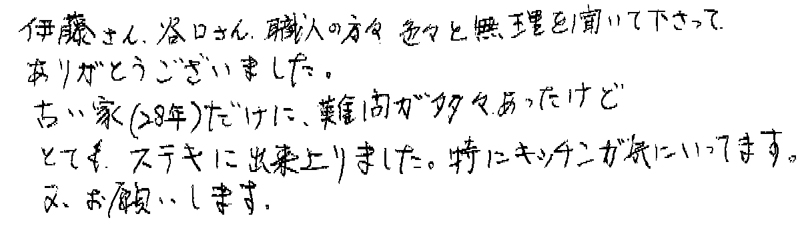 伊藤さん、谷口さん、職人の方々 色々と無理を聞いて下さって
ありがとうございました。
古い家(28年)だけに、難問が多々あったけど
とても ステキに出来上りました。特にキッチンが気にいってます。
又、お願いします。